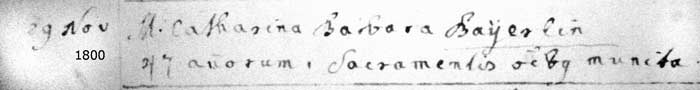 29 Nov M. Catharina Barbara Bayerlin
1800 47 añorum, Sacramentis oi͠bq munita.